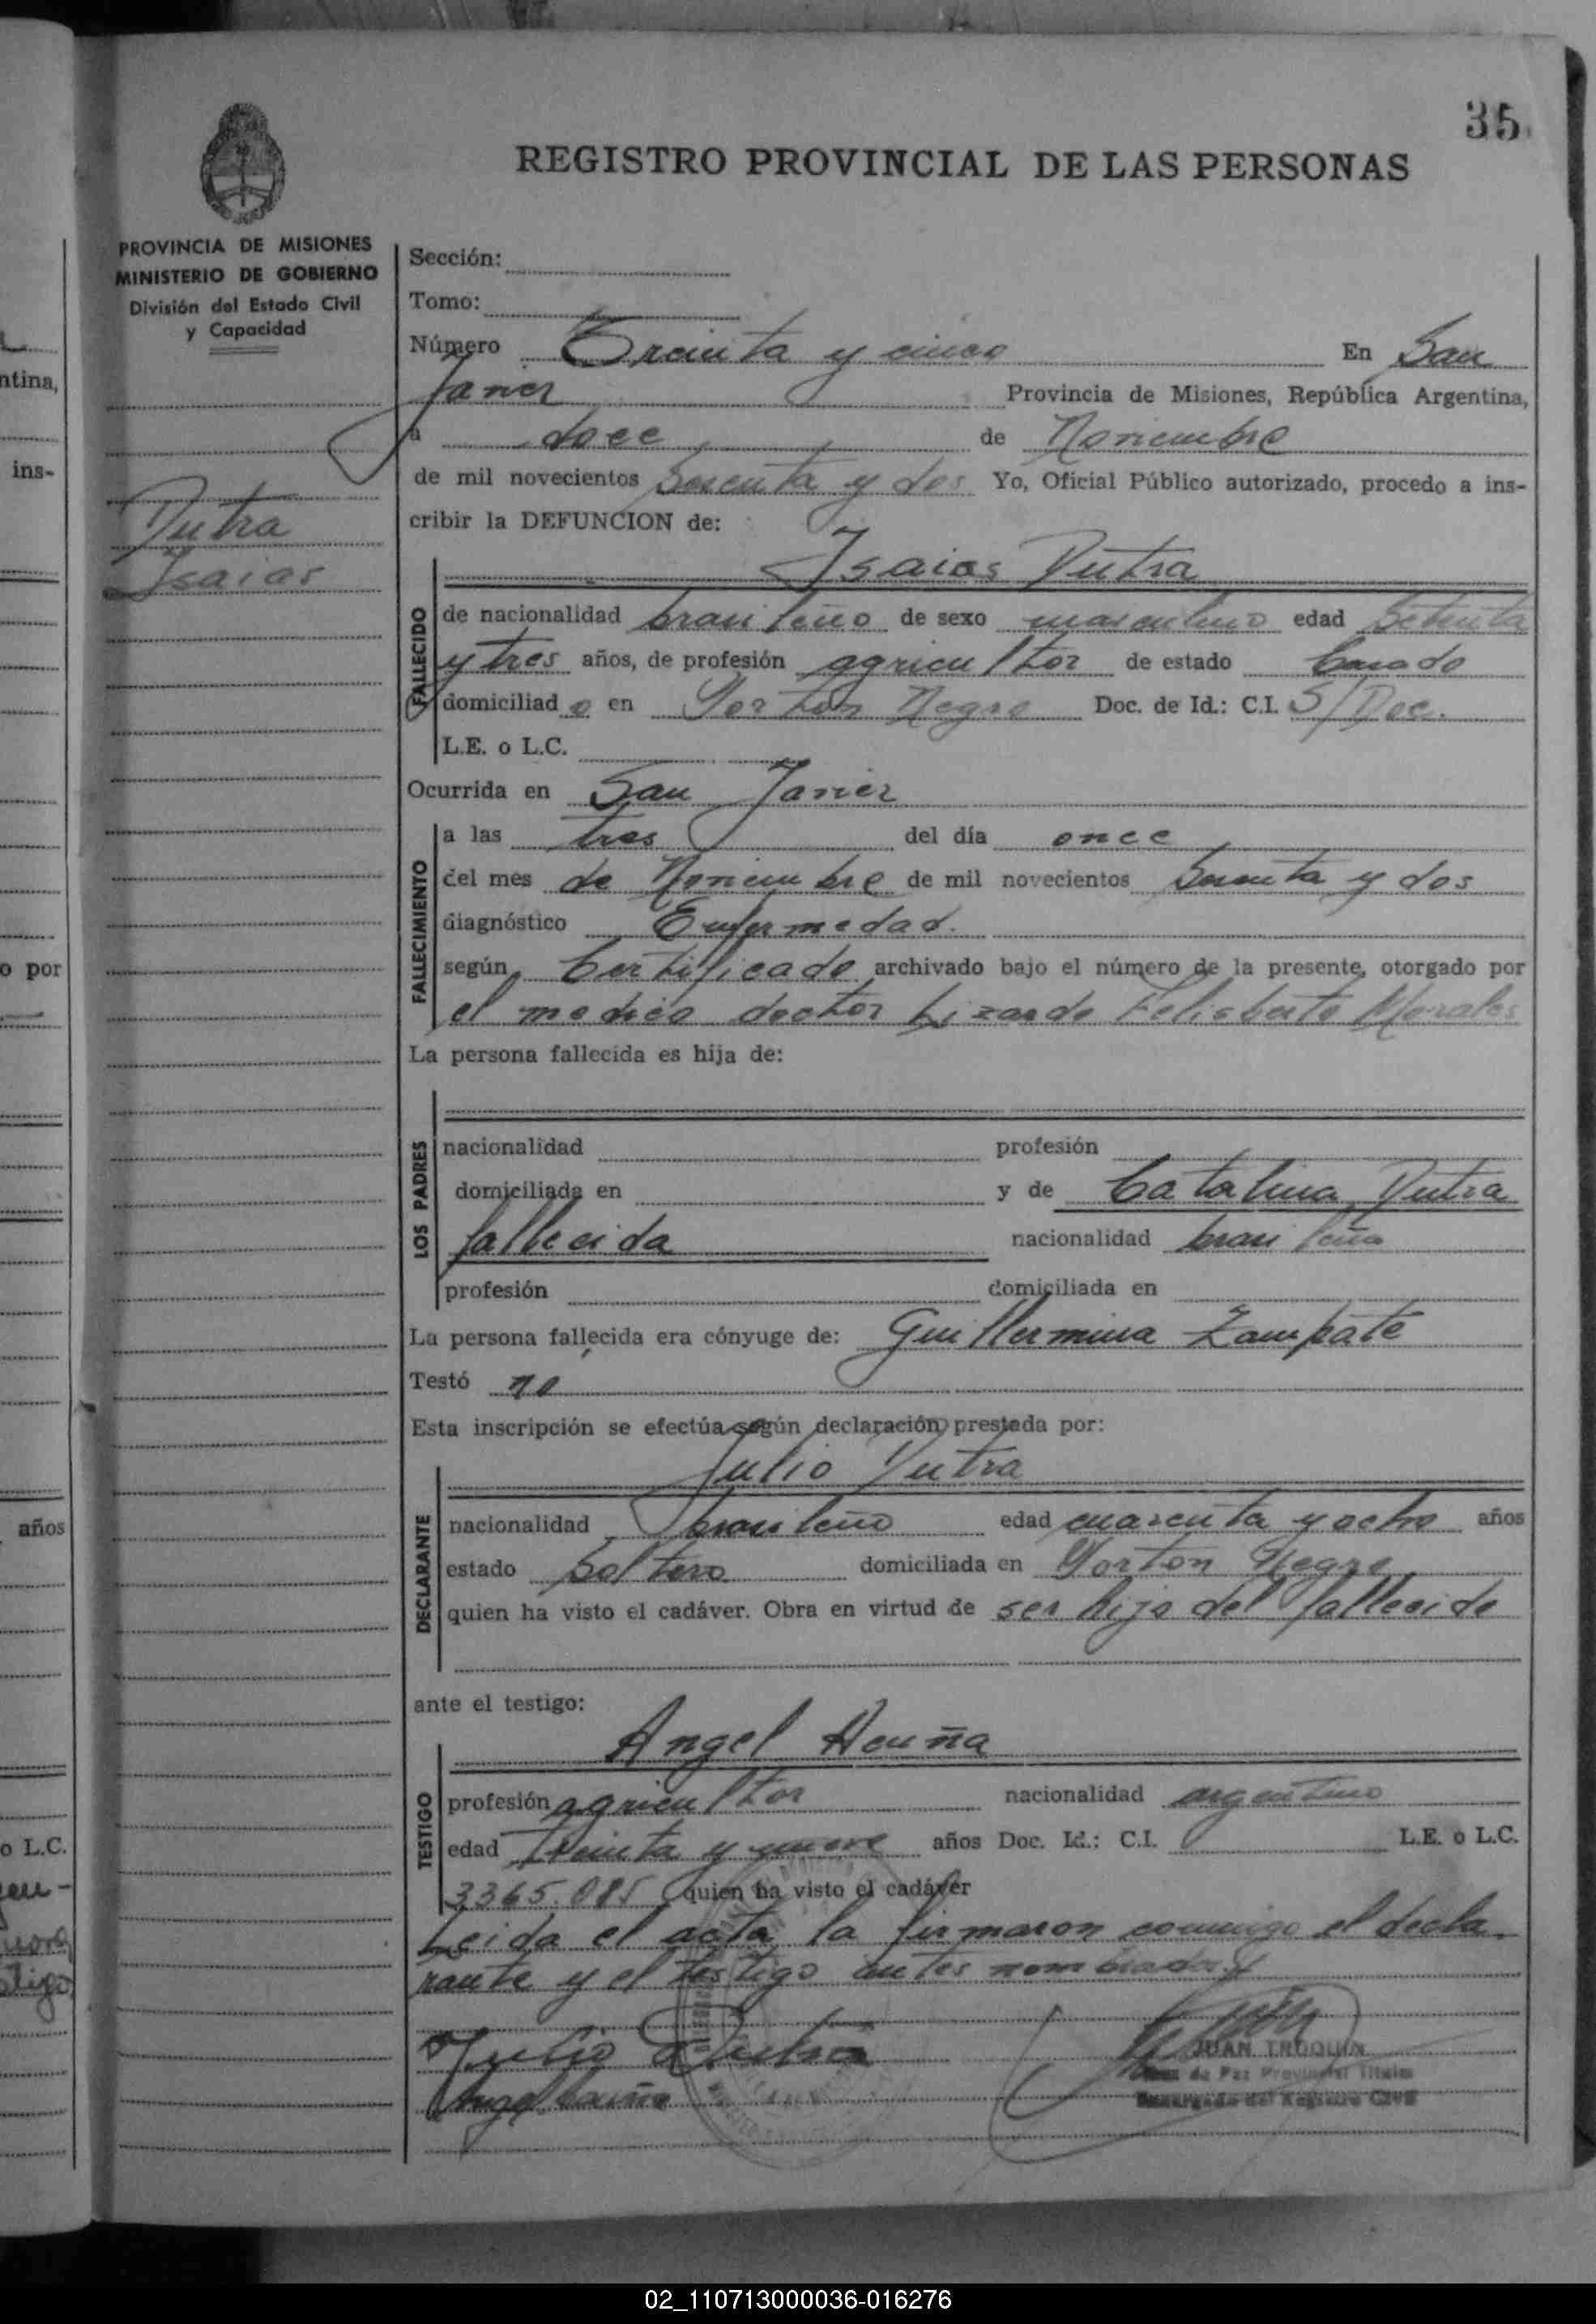 35
REGISTRO PROVINCIAL DE LAS PERSONAS
PROVINCIA DE MISIONES
MINISTERIO DE GOBIERNO
División del Estado Civil
y Capacidad
Dutra
Isaias
Sección:
Tomo:
Número Treinta y cinco En San
Javier Provincia de Misiones, República Argentina,
a doce de Noviembre
de mil novecientos Sesenta y dos Yo, Oficial Público autorizado, procedo a ins-
cribir la DEFUNCION de:
Isaias Dutra
FALLECIDO
de nacionalidad brasileño de sexo masculino edad Setenta
y tres años, de profesión agricultor de estado Casado
domiciliad o en Porton Negro Doc. de Id.: C.I. S/Doc.
L.E. o L.C.
Ocurrida en San Javier
FALLECIMIENTO
a las tres del día once
del mes de Noviembre de mil novecientos Sesenta y dos
diagnóstico Enfermedad.
según Certificado archivado bajo el número de la presente, otorgado por
el medico doctor Lizardo Felisberto Morales
La persona fallecida es hija de:
LOS PADRES
nacionalidad profesión
domiciliada en y de Catalina Dutra
fallecida nacionalidad brasileña
profesión domiciliada en
La persona fallecida era cónyuge de: Guillermina Zampate
Testó no
Esta inscripción se efectúa según declaración prestada por:
Julio Dutra
DECLARANTE
nacionalidad brasileño edad cuarenta y ocho años
estado Soltero domiciliada en Porton Negro
quien ha visto el cadáver. Obra en virtud de ser hijo del fallecido
ante el testigo:
Angel Acuña
TESTIGO
profesión agricultor nacionalidad argentino
edad Treinta y nueve años Doc. Id.: C.I. L.E. o L.C.
3365.085 quien ha visto el cadáver
Leida el acta la firmaron conmigo el decla
rante y el testigo antes nombrados
Julio Dutra
JUAN
Juez de Paz Provincial Titular
Angel Acuña
Encargado del Registro Civil
ntina,
ins-
o por
años
o L.C.
02_110713000036-016276